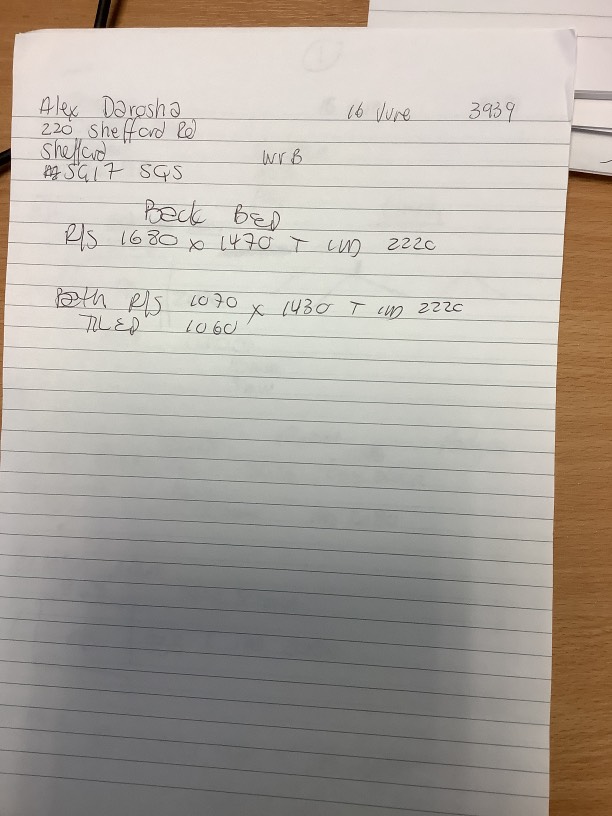 Alex Darosha 16 June 3939
220 Shefford Rd
Shefford WTB
SG17 5QS
Back BED
R/S 1680 x 1470 T LW 2220
Bath R/S 1070 x 1430 T LW 2220
TILED 1060